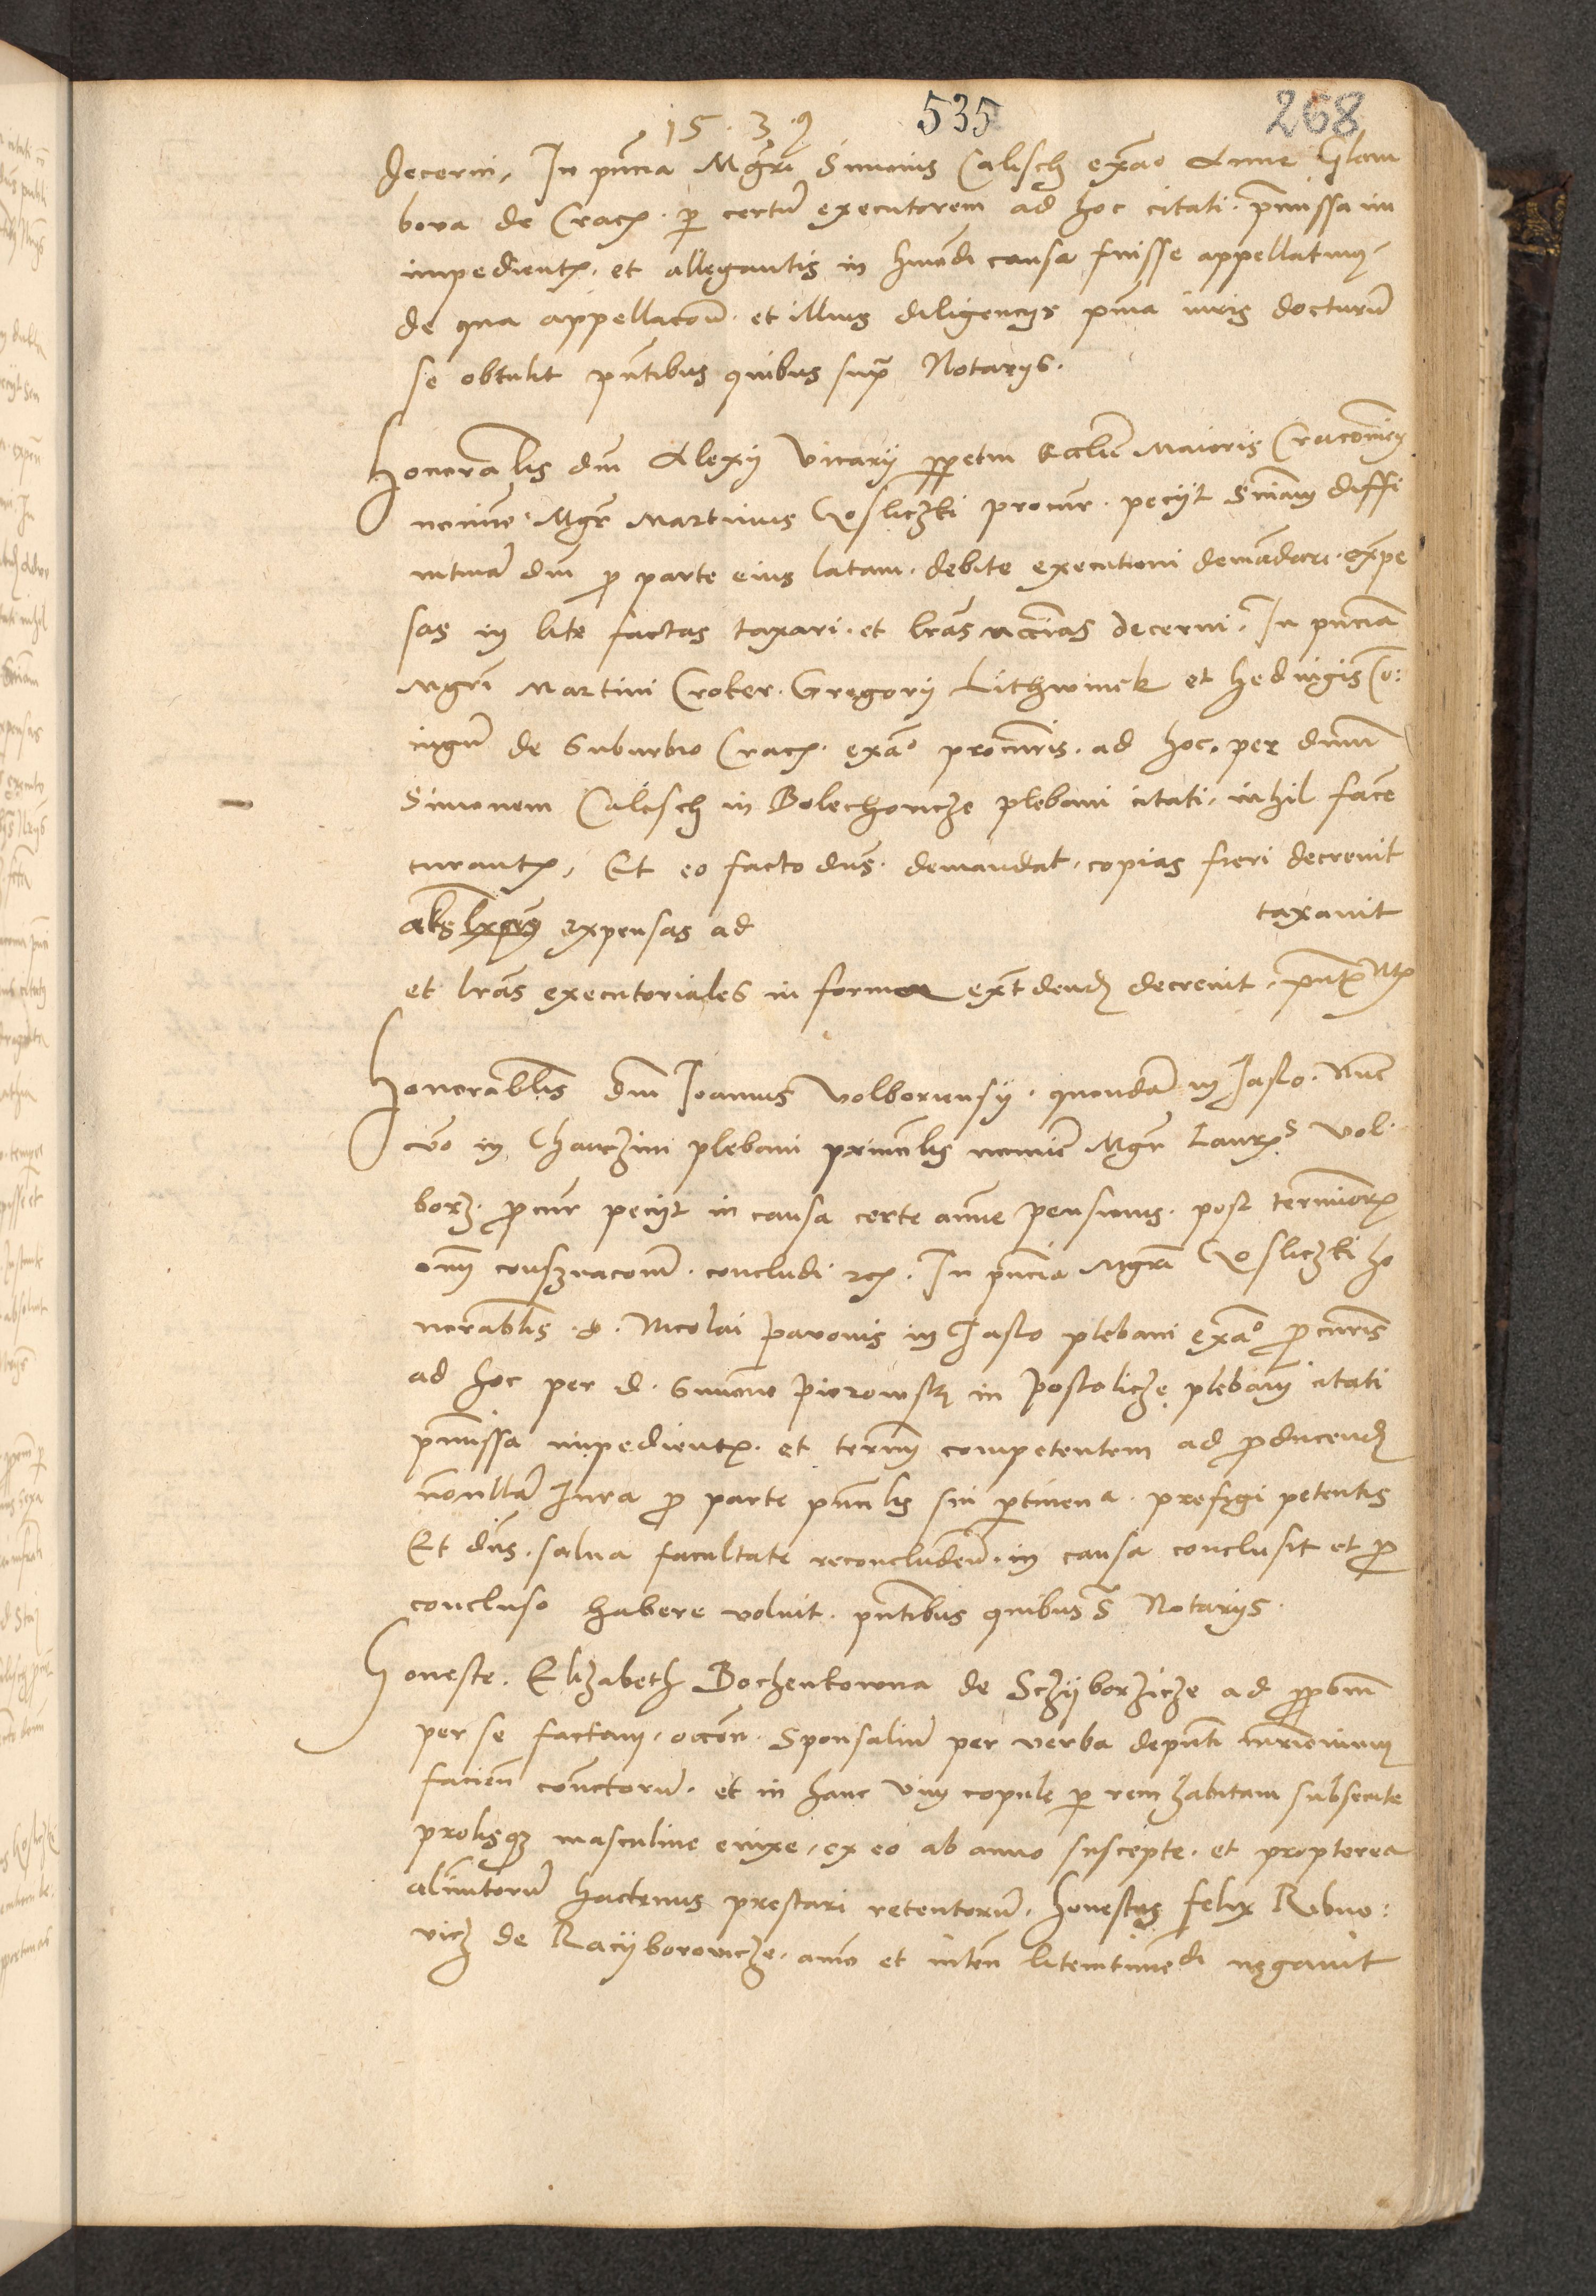 15 · 3 · 9 535 268
decerni, In pn̄cia Mgr̄i Simonis Calisch ex aō Anne Glam
bova de Crac̄. p̄ certū executorem ad hoc citati. p̄missa im
impedientꝭ. et allegantis in hmōdi causa fuisse appellatum,
de qua appellacōn̄. et illius diligencijs pn̄ia iuris docturū
se obtulit pn̄tibus quibus supꝭ Notarijs.
Honorabꝉis dn̄i Alexij Vicarij ꝑpetui Eccl̄ie Maioris Cracovien̄
nomine Mgr̄ Martinus Gosliczki procur. pecijt sn̄iam diffi
nitivā dn̄i ꝓ parte eius latam. debite executioni demādari. expe
sas in lite factas taxari. et lr̄as decerni. In pn̄ciā
Mgr̄i Martini Croker. Gregorij Lithwinek et Hedvigis Co:
iugū de suburbio Crac̄. ex aō procur̄is. ad hoc. per dn̄um
Simonem Calisch in Bolechovicze plebani citati. nihil facē
curantꝭ, Et eo facto dn̄s. demandat. copias fieri decrevit
expensas ad taxavit
et lr̄as executoriales in forma ext̄dendꝭ decrevit. pn̄tꝭ Ntꝭ
Honorabꝉis dn̄i Joannis Volboriensij. quondā in Jaslo. Nūc
v̄o in Charczini plebani principalis nomīe Mgr̄ Laurꝭs Vol.
borz. ꝓcur̄ pecijt in causa certe annue pensionis. post terminorꝭ
om̄ conservacōnē. concludi etc. In pn̄cia Mgr̄i Gosliczki ho
norabꝉis. d. Nicolai Pavonis in Jaslo plebani ex aō ꝓcur̄is
ad hoc per d. Simonē Piorowskꝭ in Postolicze plebanū citati
p̄missa impedientꝭ. et termn̄ competentem ad ꝓducendꝭ
nōnulla Iura ꝓ parte prīncꝉis sui ꝑtinen a. prefigi petentis
Et dn̄s. salva facultate reconcludendi. in causa conclusit et ꝓ
concluso habere voluit. pn̄tibus quibus s̄ Notarijs.
Honeste. Elizabeth Bochenkowna de Sczijborzicze ad ꝓpōnē
per se factam. occōn̄. Sponsaliū per verba de pn̄ti mr̄imoniū
facien̄ contractorū. et in hanc vim copule ꝑ rem habitam subsecute
prolisqꝫ masculine enixe, ex eo ab anno suscepte. et propterea
alimētorū hactenus prestari retentorū. honestus Felix Rubno:
vicz de Raciiborovicze. anīo et inten̄ litem contestandi negavit